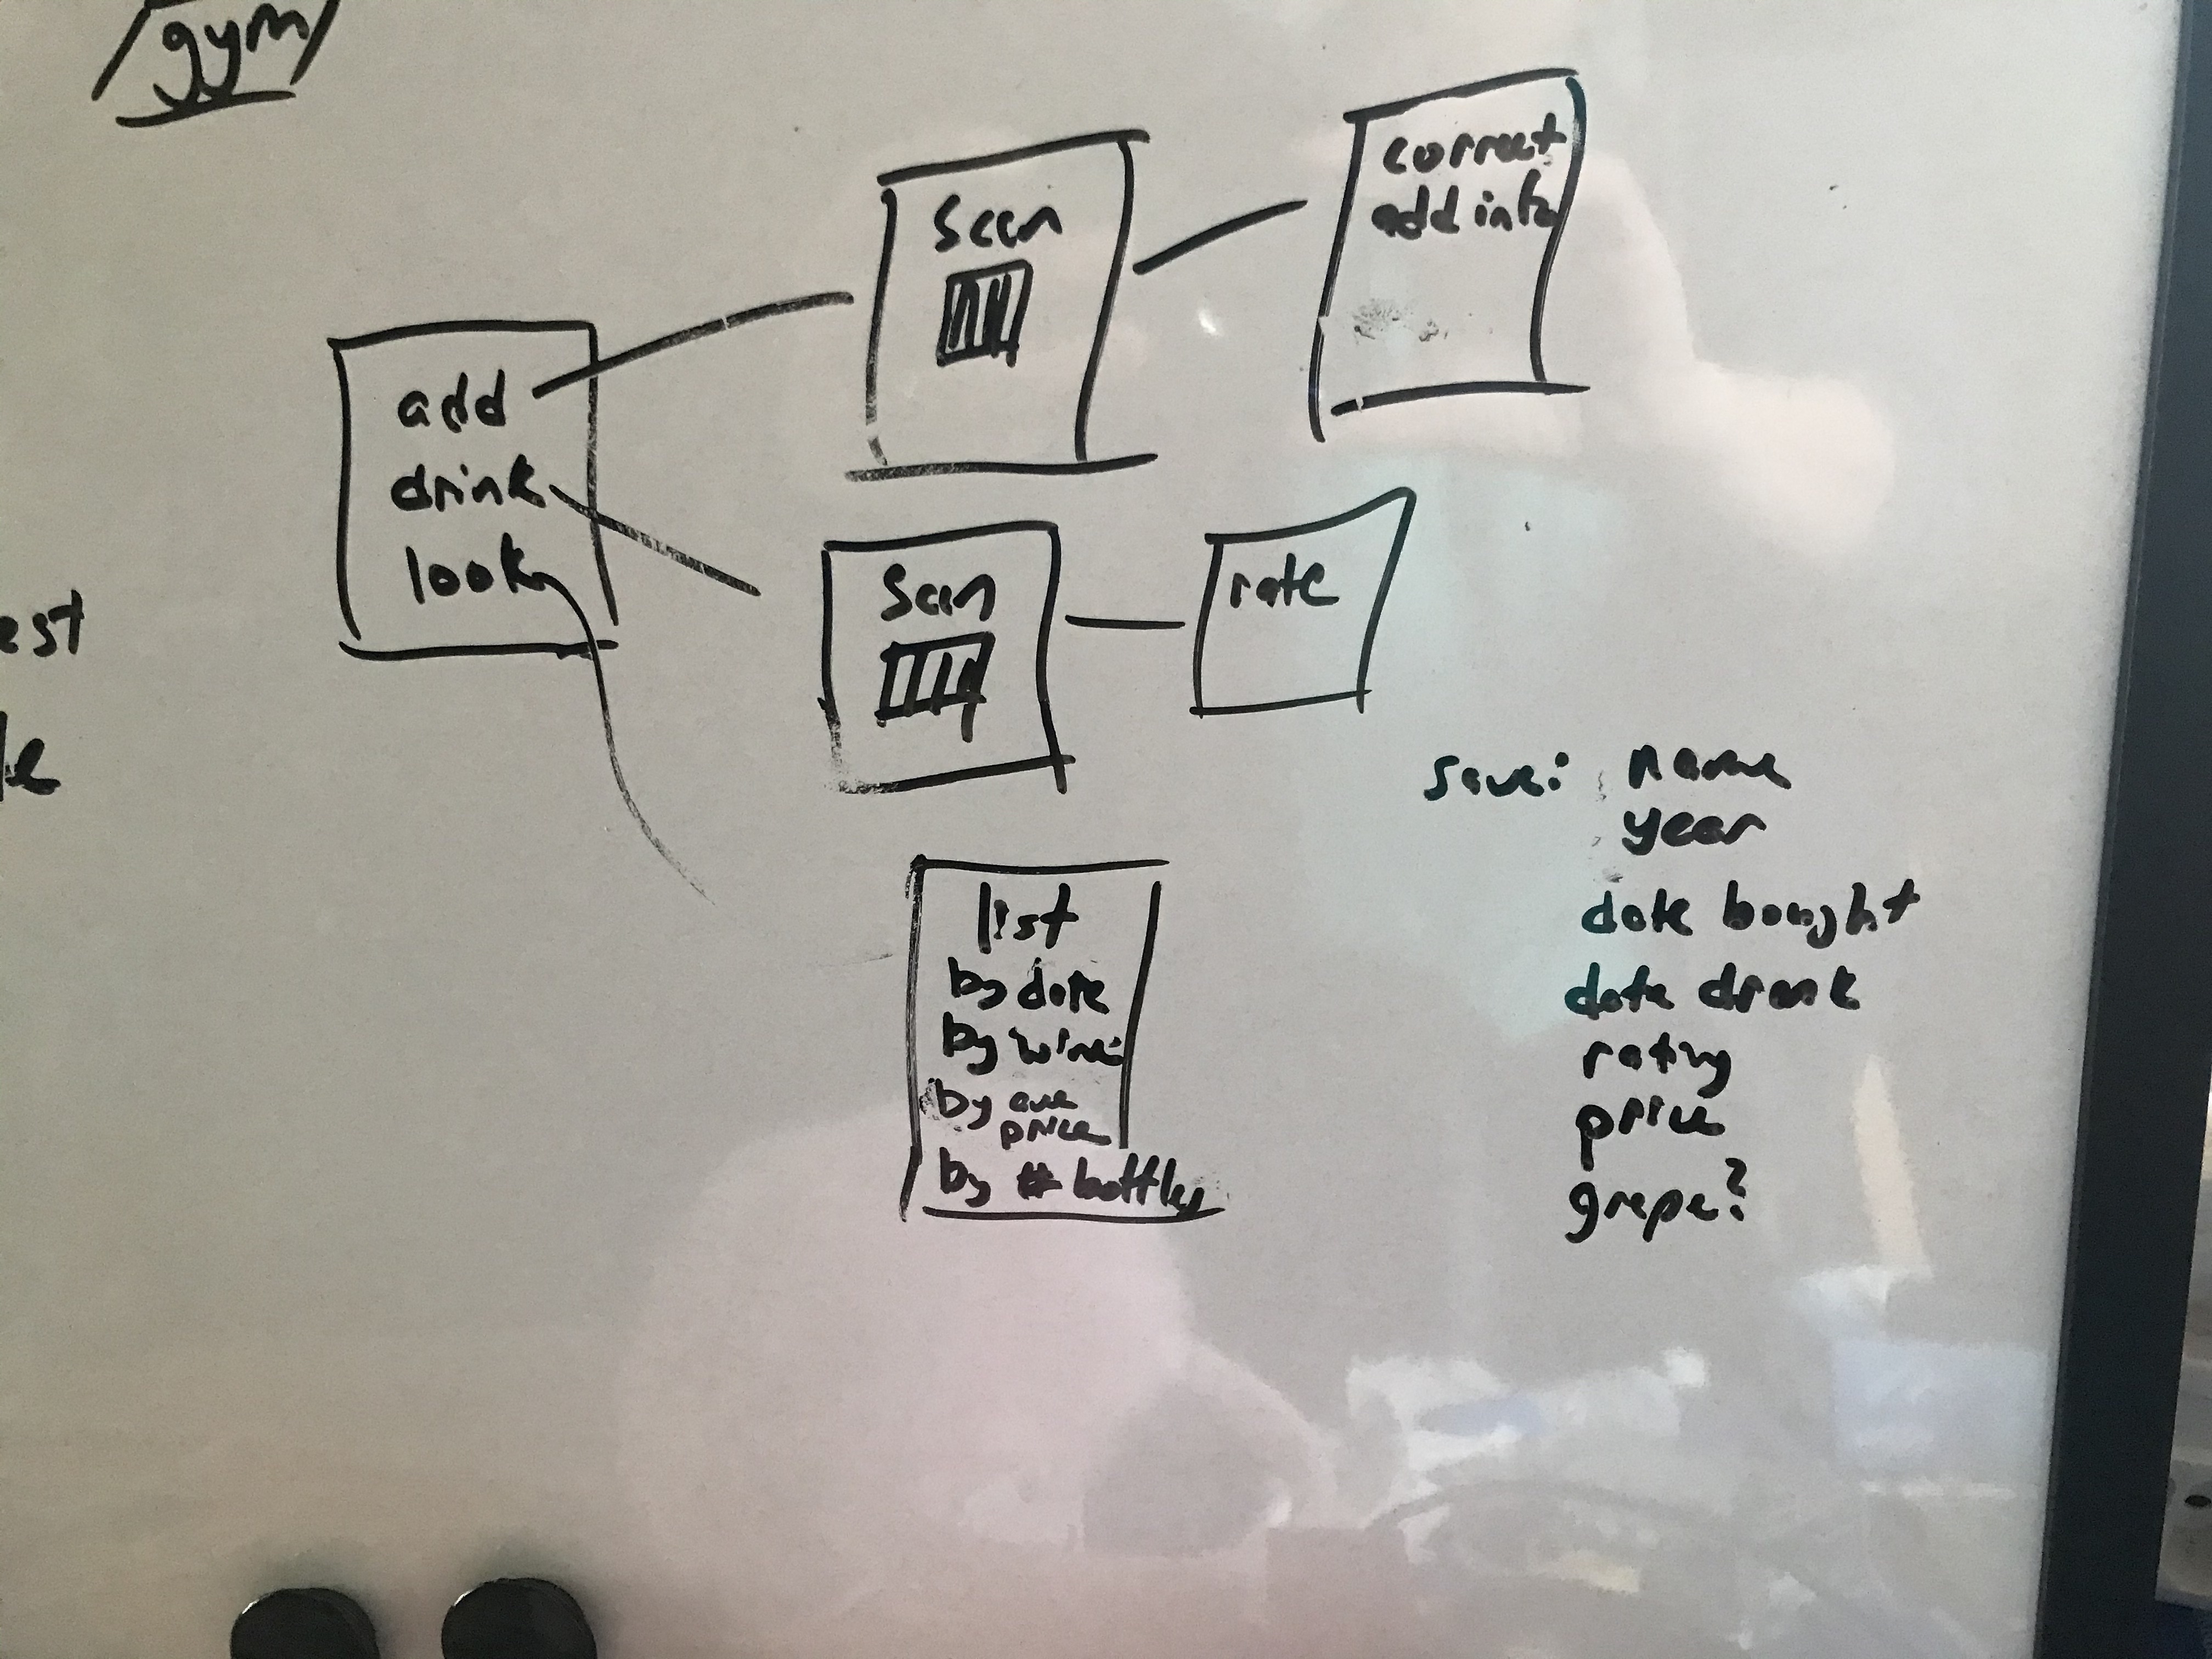 /gym/
add
drink
look
scan
correct
add info
scan
rate
list
by date
by wine
by ave
price
by # bottles
save: name
year
date bought
date drank
rating
price
grape?
est
le